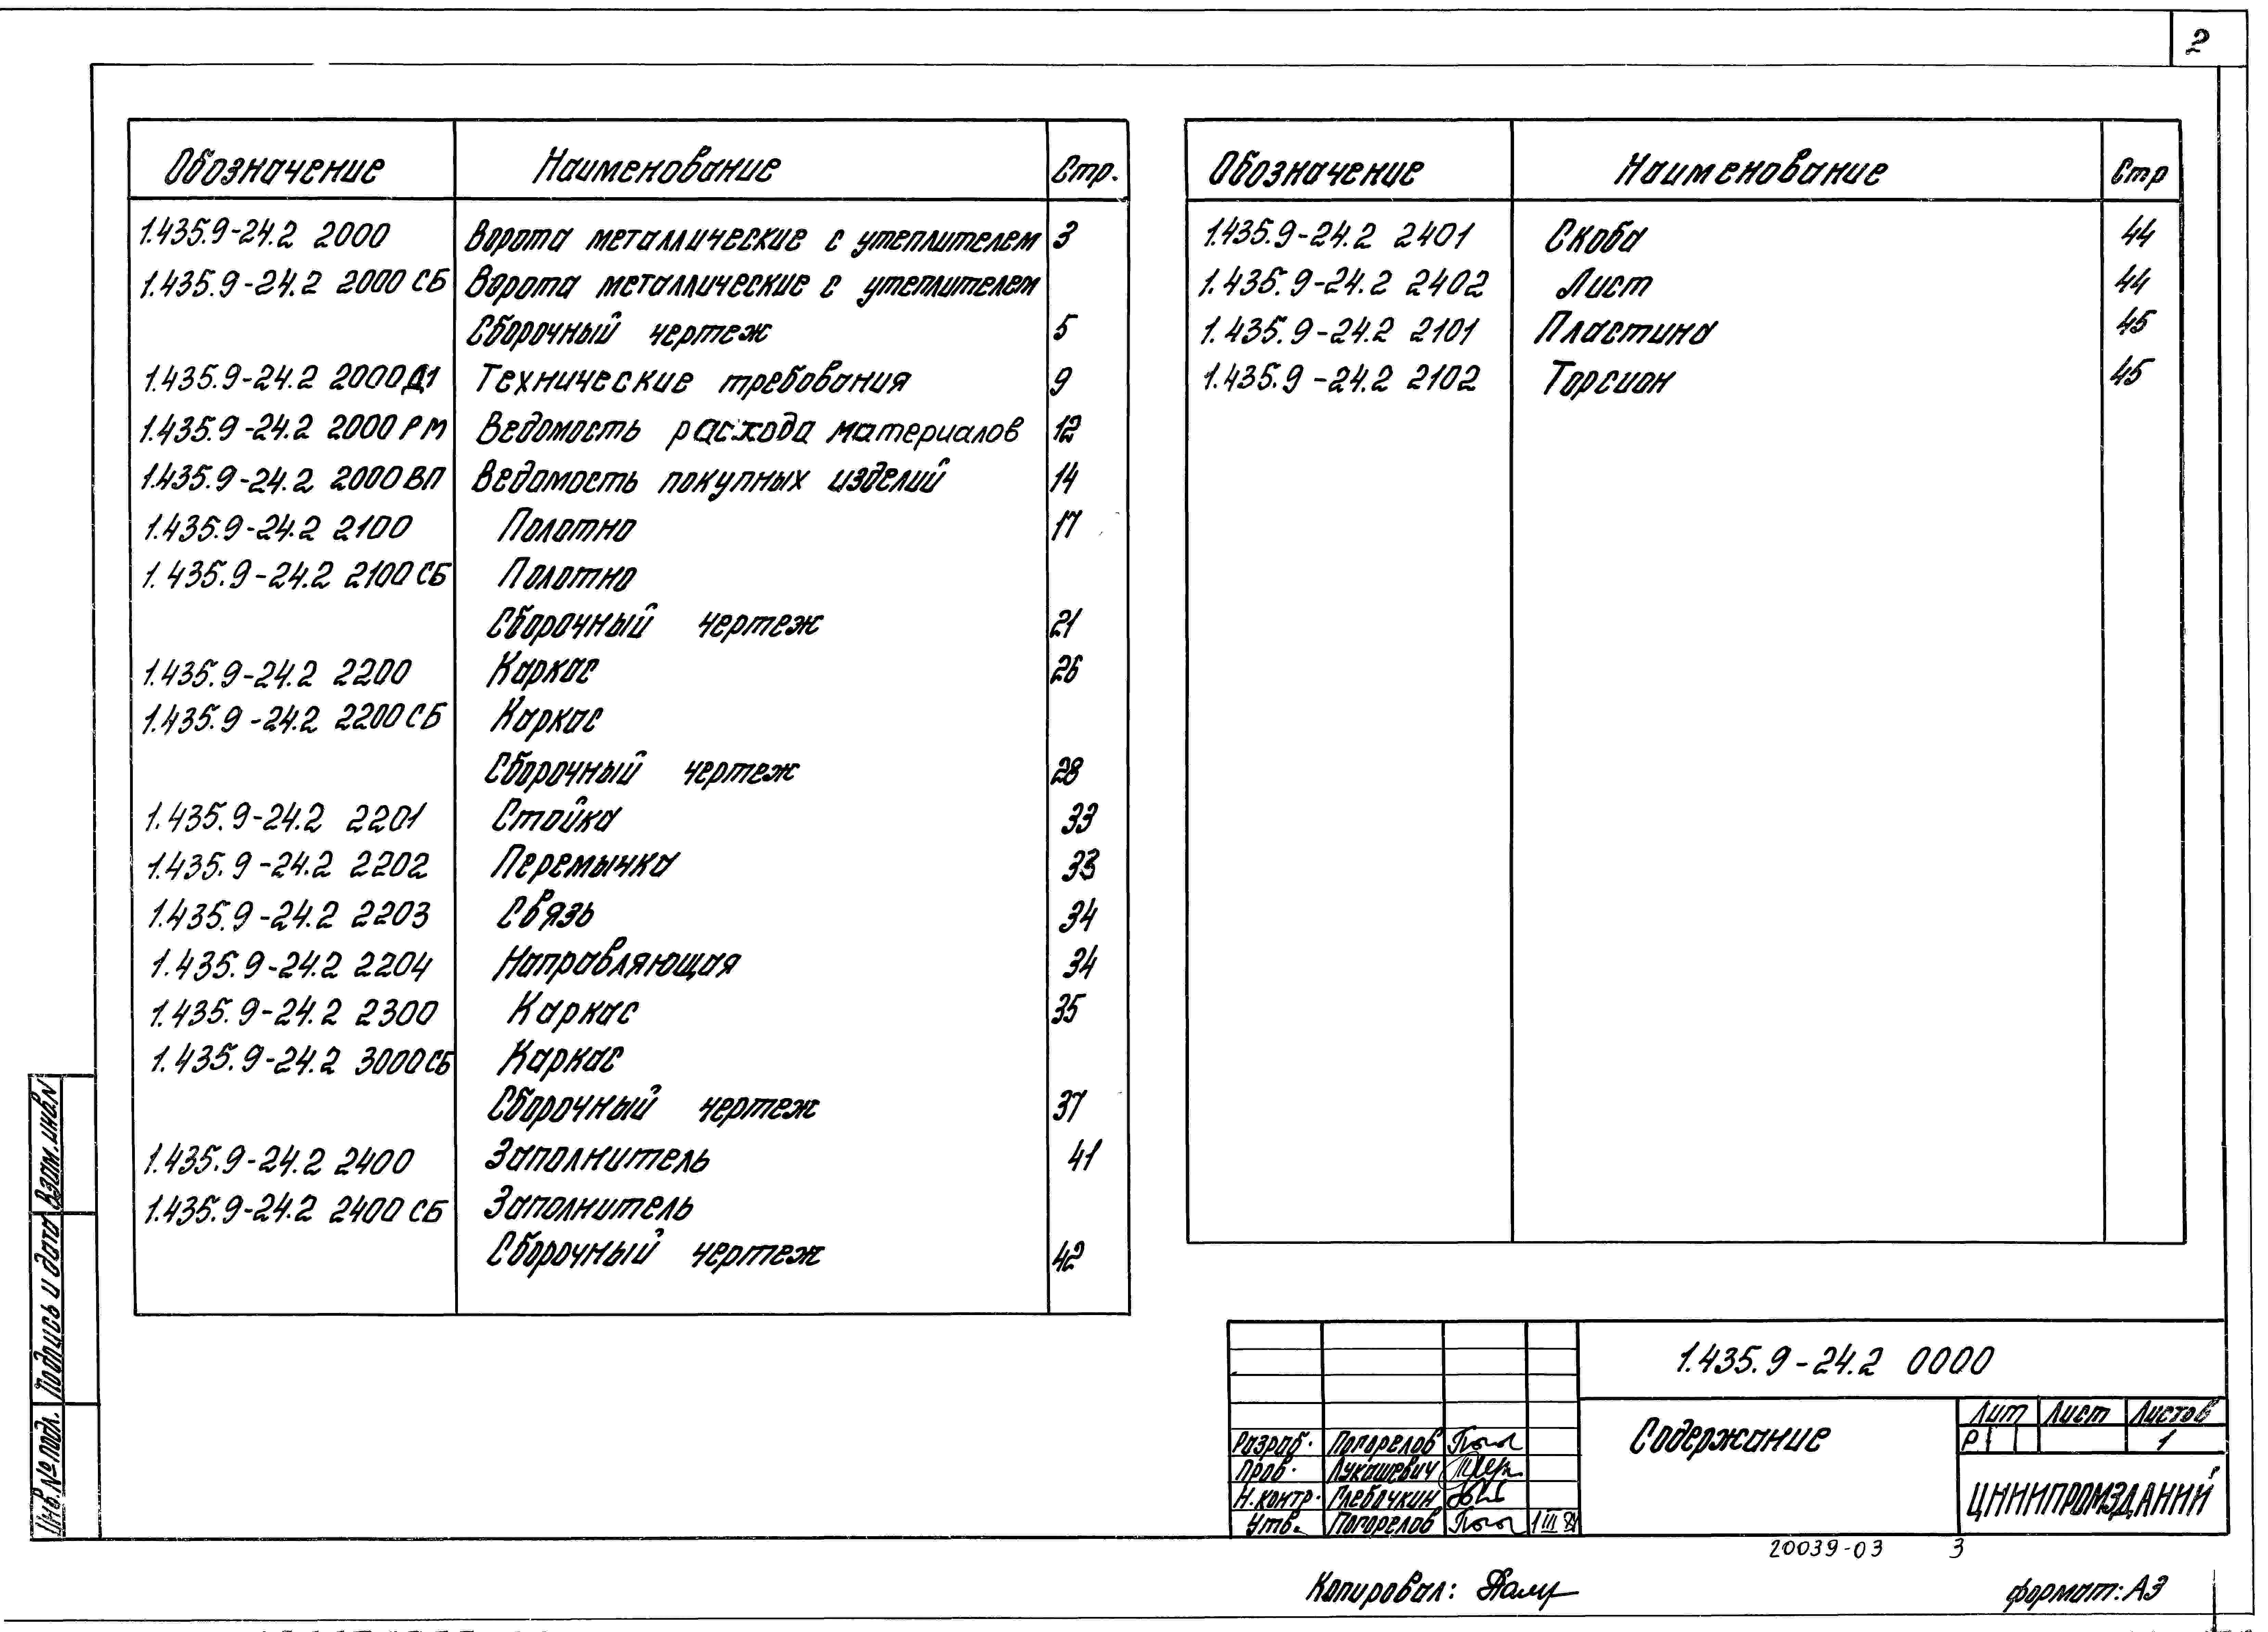 2
Обозначение Наименование Стр.
1.435.9-24.2 2000 Ворота металлические с утеплителем 3
1.435.9-24.2 2000 СБ Ворота металлические с утеплителем
Сборочный чертеж 5
1.435.9-24.2 2000Д1 Технические требования 9
1.435.9-24.2 2000 РМ Ведомость расхода материалов 12
1.435.9-24.2 2000 ВП Ведомость покупных изделий 14
1.435.9-24.2 2100 Полотно 17
1.435.9-24.2 2100 СБ Полотно
Сборочный чертеж 21
1.435.9-24.2 2200 Каркас 26
1.435.9-24.2 2200 СБ Каркас
Сборочный чертеж 28
1.435.9-24.2 2201 Стойка 33
1.435.9-24.2 2202 Перемычка 33
1.435.9-24.2 2203 Связь 34
1.435.9-24.2 2204 Направляющая 34
1.435.9-24.2 2300 Каркас 35
1.435.9-24.2 3000 СБ Каркас
Сборочный чертеж 37
1.435.9-24.2 2400 Заполнитель 41
1.435.9-24.2 2400 СБ Заполнитель
Сборочный чертеж 42
Обозначение Наименование Стр
1.435.9-24.2 2401 Скоба 44
1.435.9-24.2 2402 Лист 44
1.435.9-24.2 2101 Пластина 45
1.435.9-24.2 2102 Торсион 45
Взам. инв. N
Подпись и дата
Инв. № подл.
1.435.9-24.2 0000
Содержание
Лит Лист Листов
Р 1
ЦНИИПРОМЗДАНИЙ
Разраб. Погорелов
Пров. Лукашевич
Н. контр. Глебочкин
Утв. Погорелов 1 III 84
20039-03 3
Копировал:
формат: А3